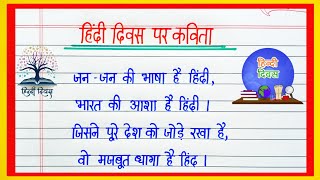 हिंदी दिवस पर कविता
हिन्दी दिवस
हिन्दी
दिवस
जन-जन की भाषा है हिंदी,
भारत की आशा है हिंदी ।
जिसने पूरे देश को जोड़े रखा है,
वो मजबूत धागा है हिंद ।